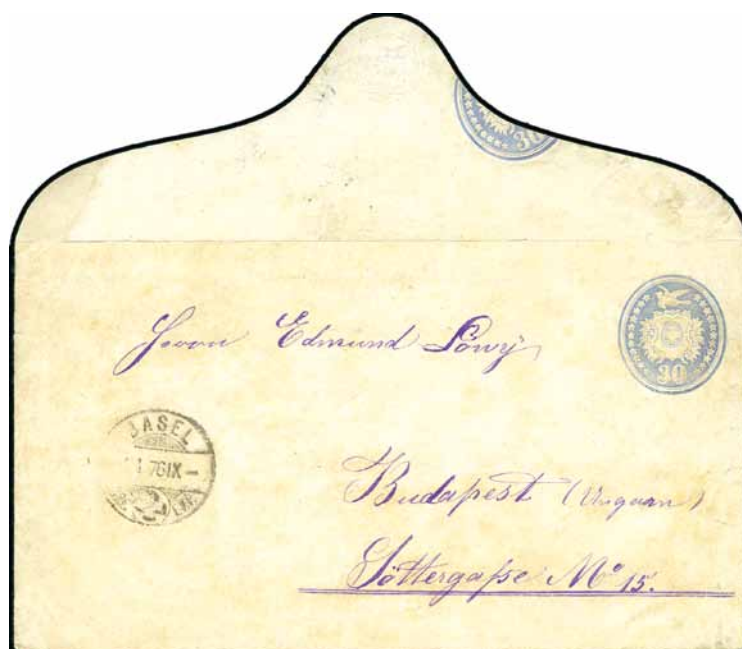 30
30
Herrn Edmund Löwy
BASEL
1 76 IX –
Budapest (Ungarn)
No 15.